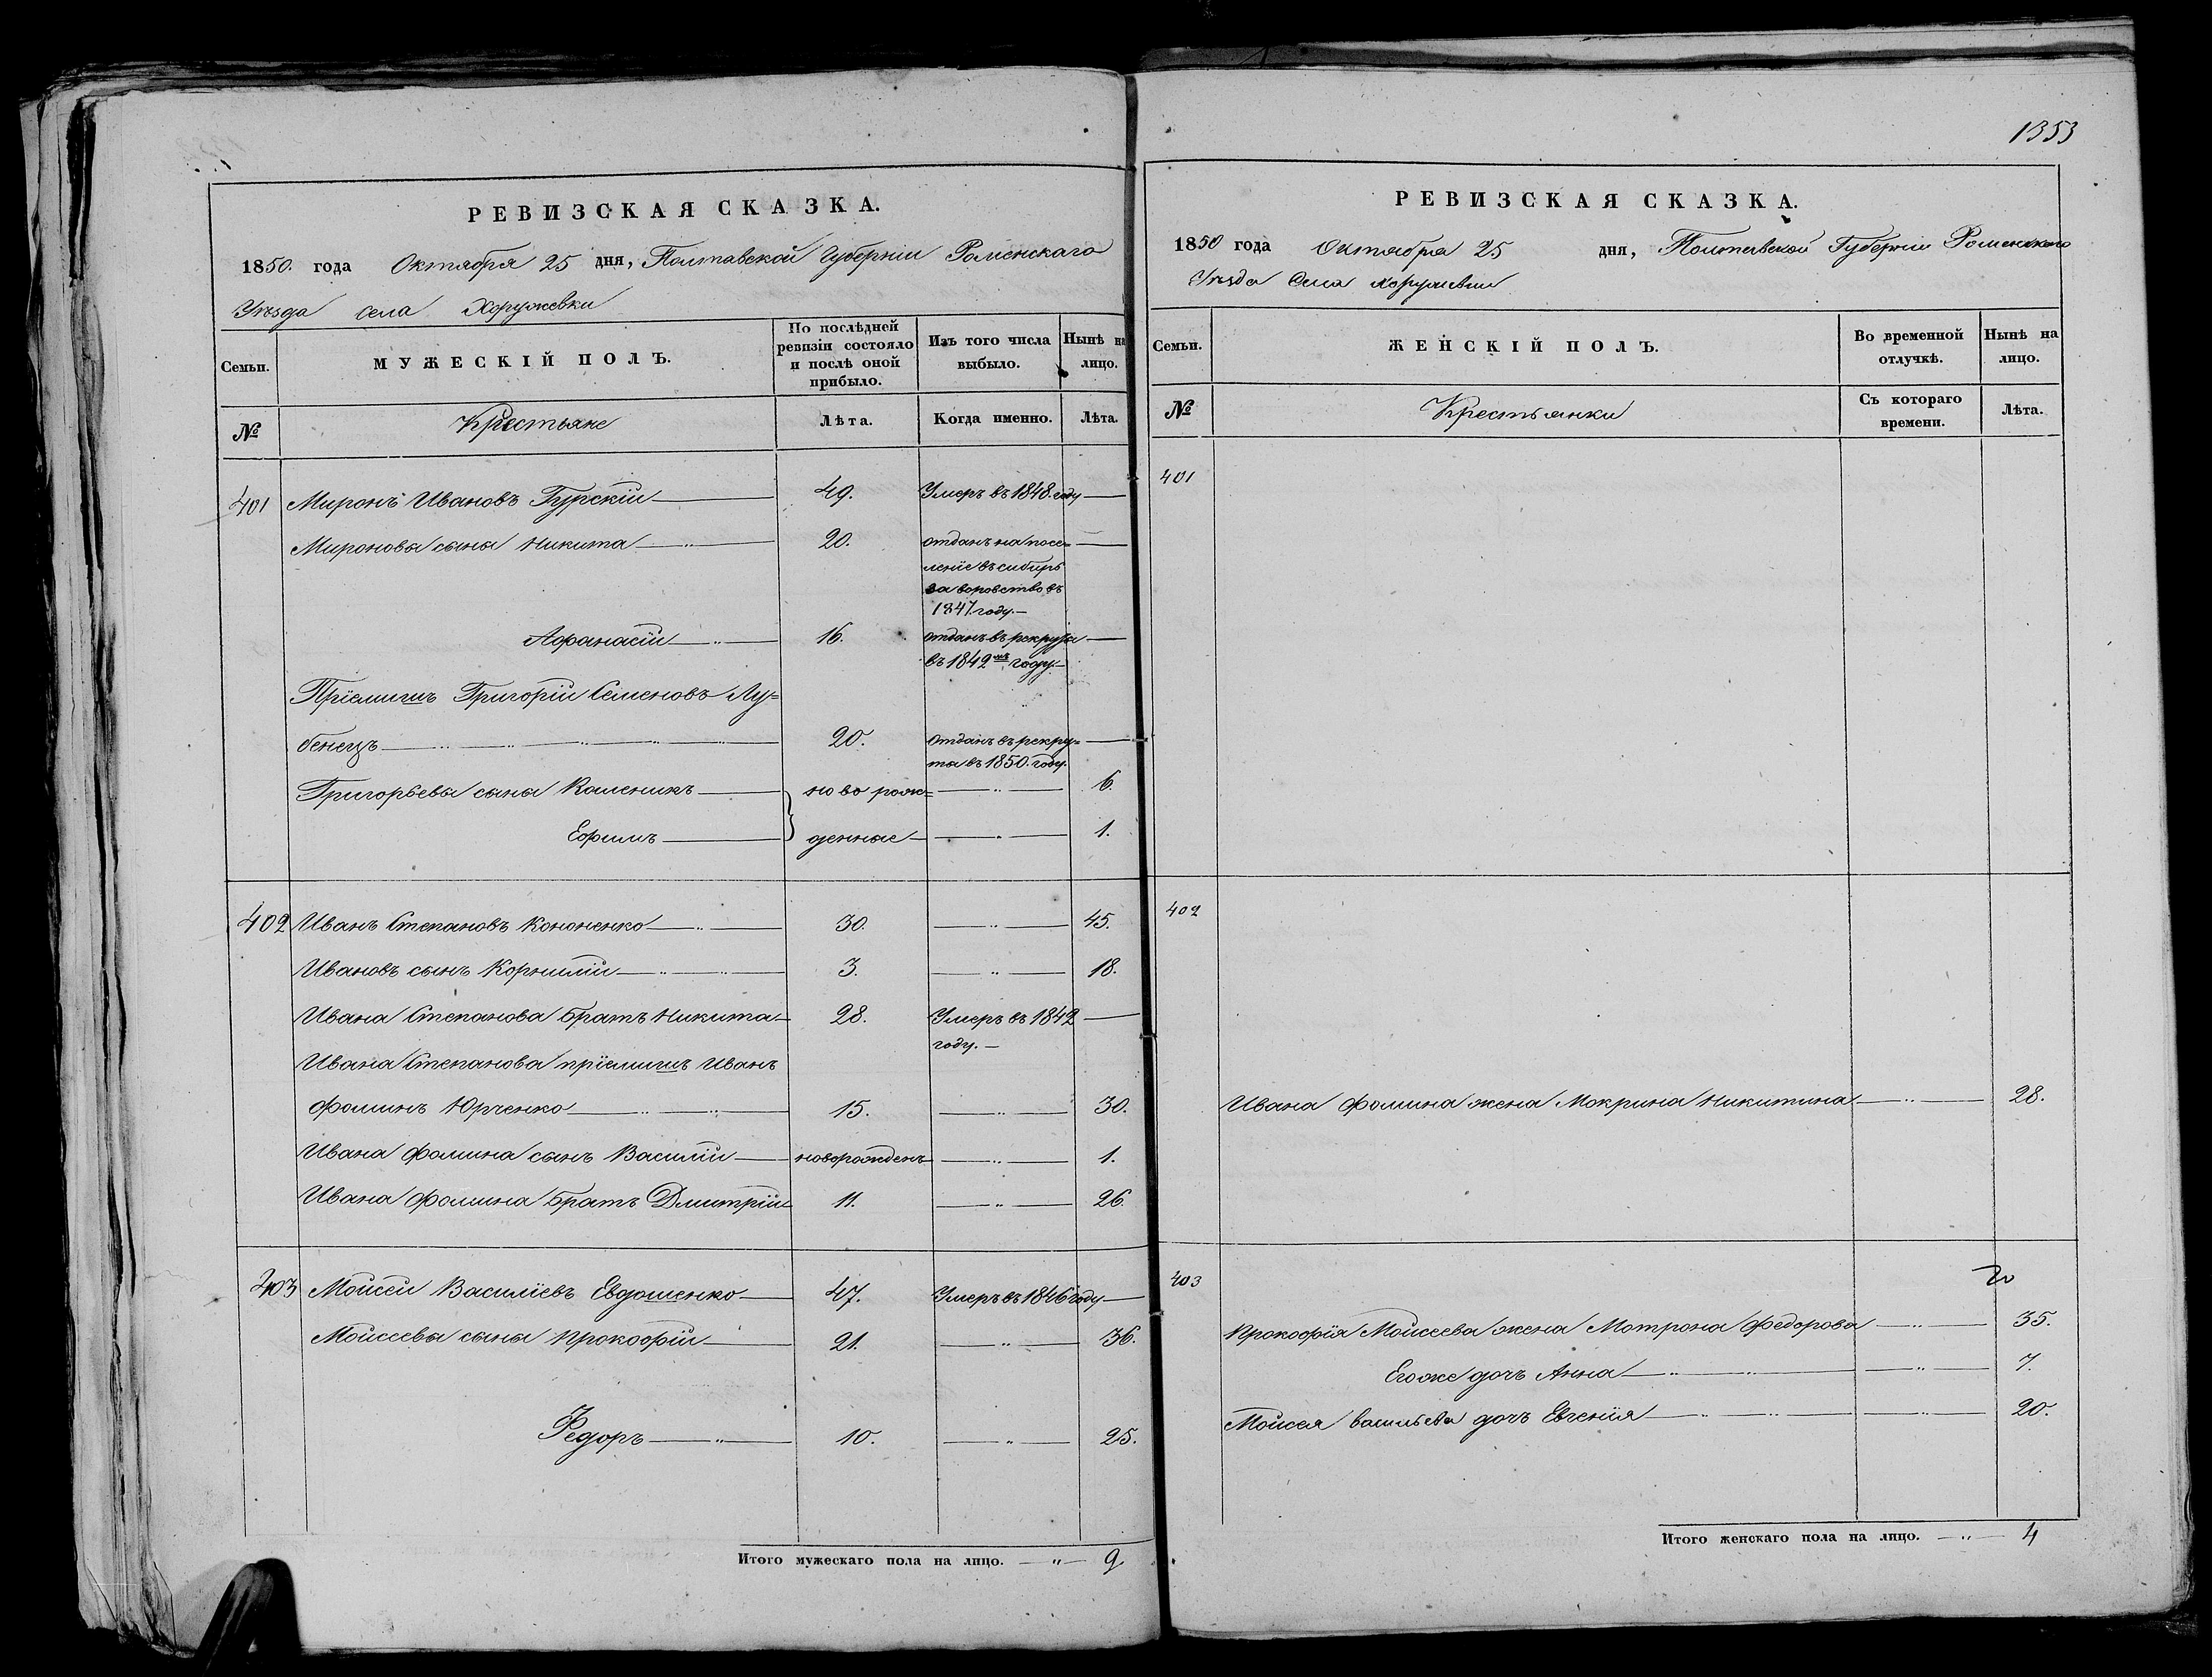 РЕВИЗСКАЯ СКАЗКА.
1850. года Октября 25 дня, Полтавской Губерніи Роменскаго
Уѣзда села Хоружевки
Семьи.
МУЖЕСКІЙ ПОЛЪ.
По послѣдней
ревизіи состояло
и послѣ оной
прибыло.
Изъ того числа
выбыло.
Нынѣ на
лицо.
№
Крестьяне
Лѣта.
Когда именно.
Лѣта.
401 Миронъ Ивановъ Гурскій 49. Умеръ въ 1848. году
Мироновы сыны Никита 20. отданъ на посе=
леніе въ сибирь
за воровство въ
1847. году.
Афанасій 16. отданъ въ рекруты
въ 1842мъ году.
Пріемишъ Григорій Семеновъ Лу=
бенецъ 20. отданъ въ рекру=
ты въ 1850. году.
Григорьевы сыны Каленикъ ново рож= 6.
Ефимъ денные 1.
402 Иванъ Степановъ Кононенко 30. 45.
Ивановъ сынъ Корнилій 3. 18.
Ивана Степанова братъ Никита 28. Умеръ въ 1842
году.
Ивана Степанова пріемишъ Иванъ
Фоминъ Юрченко 15. 30.
Ивана Фомина сынъ Василій новорожденъ 1.
Ивана Фомина братъ Дмитрій 11. 26.
403 Моисей Василіевъ Евдошенко 47. Умеръ въ 1846 году
Моисеевы сыны Прокофій 21. 36.
Федоръ 10. 25.
Итого мужескаго пола на лицо. 9
1353
РЕВИЗСКАЯ СКАЗКА.
1850 года Октября 25 дня, Полтавской Губерніи Роменскаго
Уѣзда Села Хоружевки
Семьи.
ЖЕНСКІЙ ПОЛЪ.
Во временной
отлучкѣ.
Нынѣ на
лицо.
№
Крестьянки
Съ котораго
времени.
Лѣта.
401
402
Ивана Фомина жена Мокрина Никитина 28.
403
Прокофія Моисеева жена Мотрона Федорова 35.
Егоже дочь Анна 7.
Моисея Васильева дочь Евгенія 20.
Итого женскаго пола на лицо. 4